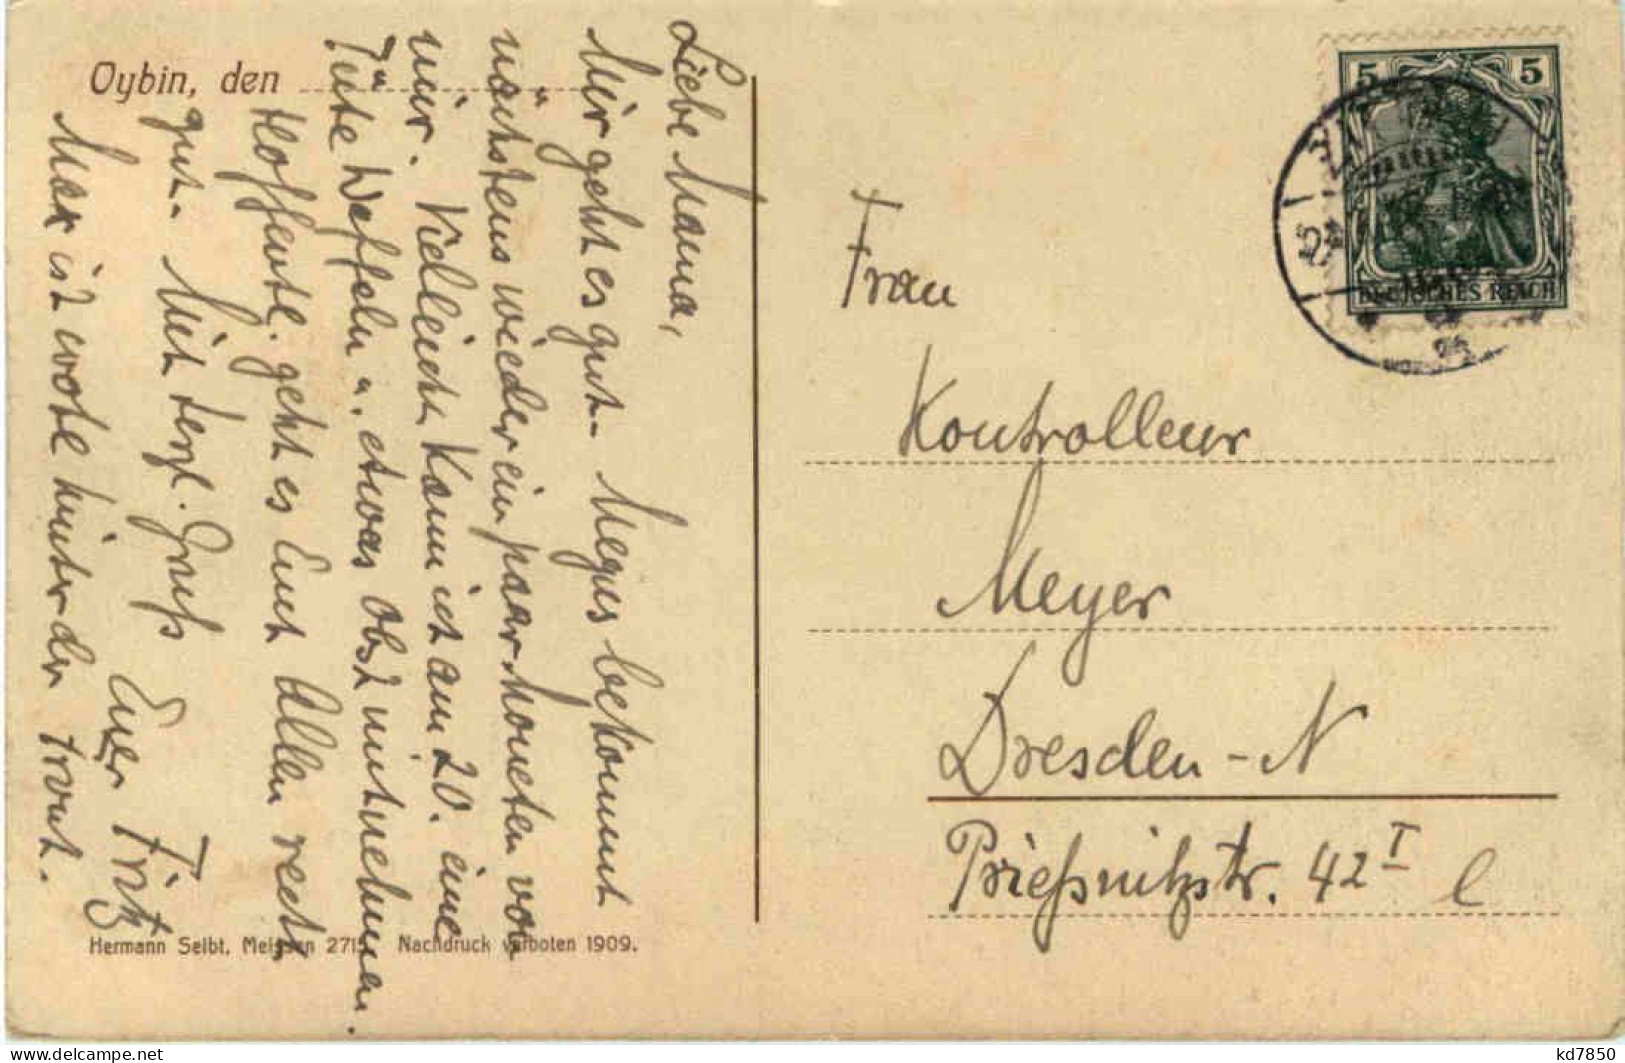 Oybin, den
Liebe Mama,
Mir geht es gut. Negus bekommt
nächstens wieder ein paar Moneten von
mir. Vielleicht kann ich am 20. eine
Tüte Waffeln u. etwas Obst mitnehmen.
Hoffentl. geht es Euch Allen recht
gut. Mit herzl. Gruß
Euer Fritz
Max ist wohl hinter der Front.
Hermann Seibt, Meissen 2715. Nachdruck verboten 1909.
5 5
DEUTSCHES REICH
Frau
Kontrolleur
Meyer
Dresden-N
Prießnitzstr. 42 I
kd7850